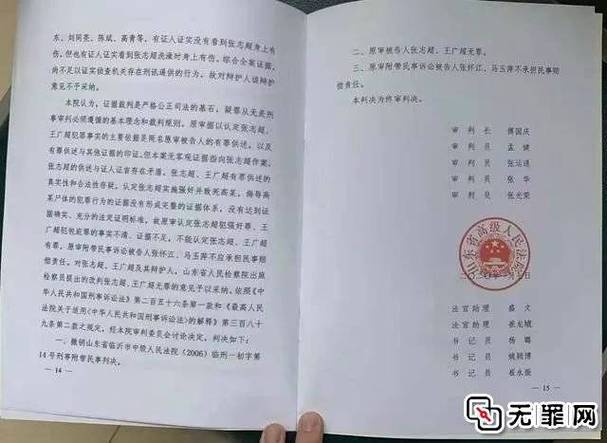 东、刘同亮、陈斌、高青等，有证人证实没有看到张志超身上有
伤，但也有证人证实看到张志超洗澡时身上有伤。综合全案证据，
尚不足以证实侦查机关存在刑讯逼供的行为，故对辩护人该辩护
意见不予采纳。
本院认为，证据裁判是严格公正司法的基石，疑罪从无是刑
事审判必须遵循的基本理念和裁判规则。原审据以认定张志超、
王广超犯罪事实的主要依据是两名原审被告人的有罪供述，以及
有罪供述与其他证据的印证。但本案无客观证据指向张志超作案，
张志超的供述与证人证言存在矛盾，张志超、王广超有罪供述的
真实性和合法性存疑，认定张志超实施强奸并致死高某，侮辱高
某尸体的犯罪行为的证据没有形成完整的证据体系，没有达到证
据确实、充分的法定证明标准，故原审认定张志超犯强奸罪、王
广超犯包庇罪的事实不清、证据不足，不能认定张志超、王广超
有罪，原审附带民事诉讼被告人张怀江、马玉萍不应承担民事赔
偿责任。对张志超、王广超及其辩护人，山东省人民检察院出庭
检察员提出的改判张志超、王广超无罪的意见予以采纳。依照《中
华人民共和国刑事诉讼法》第二百五十六条第一款和《最高人民
法院关于适用〈中华人民共和国刑事诉讼法〉的解释》第三百八十
九条第二款之规定，经本院审判委员会讨论决定，判决如下：
一、撤销山东省临沂市中级人民法院（2006）临刑一初字第
14号刑事附带民事判决。
— 14 —
二、原审被告人张志超、王广超无罪。
三、原审附带民事诉讼被告人张怀江、马玉萍不承担民事赔
偿责任。
本判决为终审判决。
审 判 长 傅国庆
审 判 员 孟 健
审 判 员 张运通
审 判 员 张 华
审 判 员 张光荣
山东省高级人民法院
法官助理 盛 文
法官助理 崔龙城
书 记 员 杨 璐
书 记 员 姚颖博
书 记 员 崔永振
— 15 —
无罪网